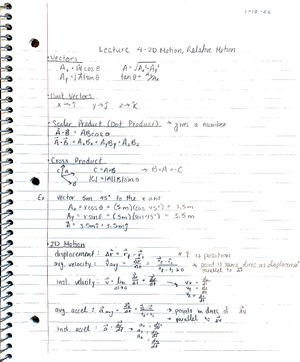 1-12-22
Lecture 4-2D Motion, Relative Motion
• Vectors
Aₓ = A cos θ A = √Aₓ²+Aᵧ²
Aᵧ = |A| sin θ tan θ =
• Unit Vectors
x → î y → ĵ z → k̂
• Scalar Product (Dot Product) → gives a number
A⃗·B⃗ = AB cos θ
A⃗·B⃗ = AₓBₓ + AᵧBᵧ + A_zB_z
• Cross Product
C = A×B → B×A = -C
|C| = |A||B| sin θ
Ex vector 5m, 45° to the x axis
Aₓ = r cos θ = (5m)(cos 45°) = 3.5m
Aᵧ = r sin θ = (5m)(sin 45°) = 3.5m
A⃗ = 3.5m î + 3.5m ĵ
• 2D Motion
displacement: Δr⃗ = r⃗₂ - r⃗₁ is position
avg. velocity: v⃗avg = Δr⃗/Δt = → point in same direc as displacement
parallel to Δr⃗
inst. velocity: v⃗ = lim Δt→0 = dr⃗/dt → vₓ = dx/dt
vᵧ = dy/dt
v_z = dz/dt
avg. accel: a⃗avg = Δv⃗/Δt = → points in direc of Δv⃗
→ parallel to Δv⃗
inst. accel: a⃗ = dv⃗/dt → aₓ =
aᵧ =
a_z =